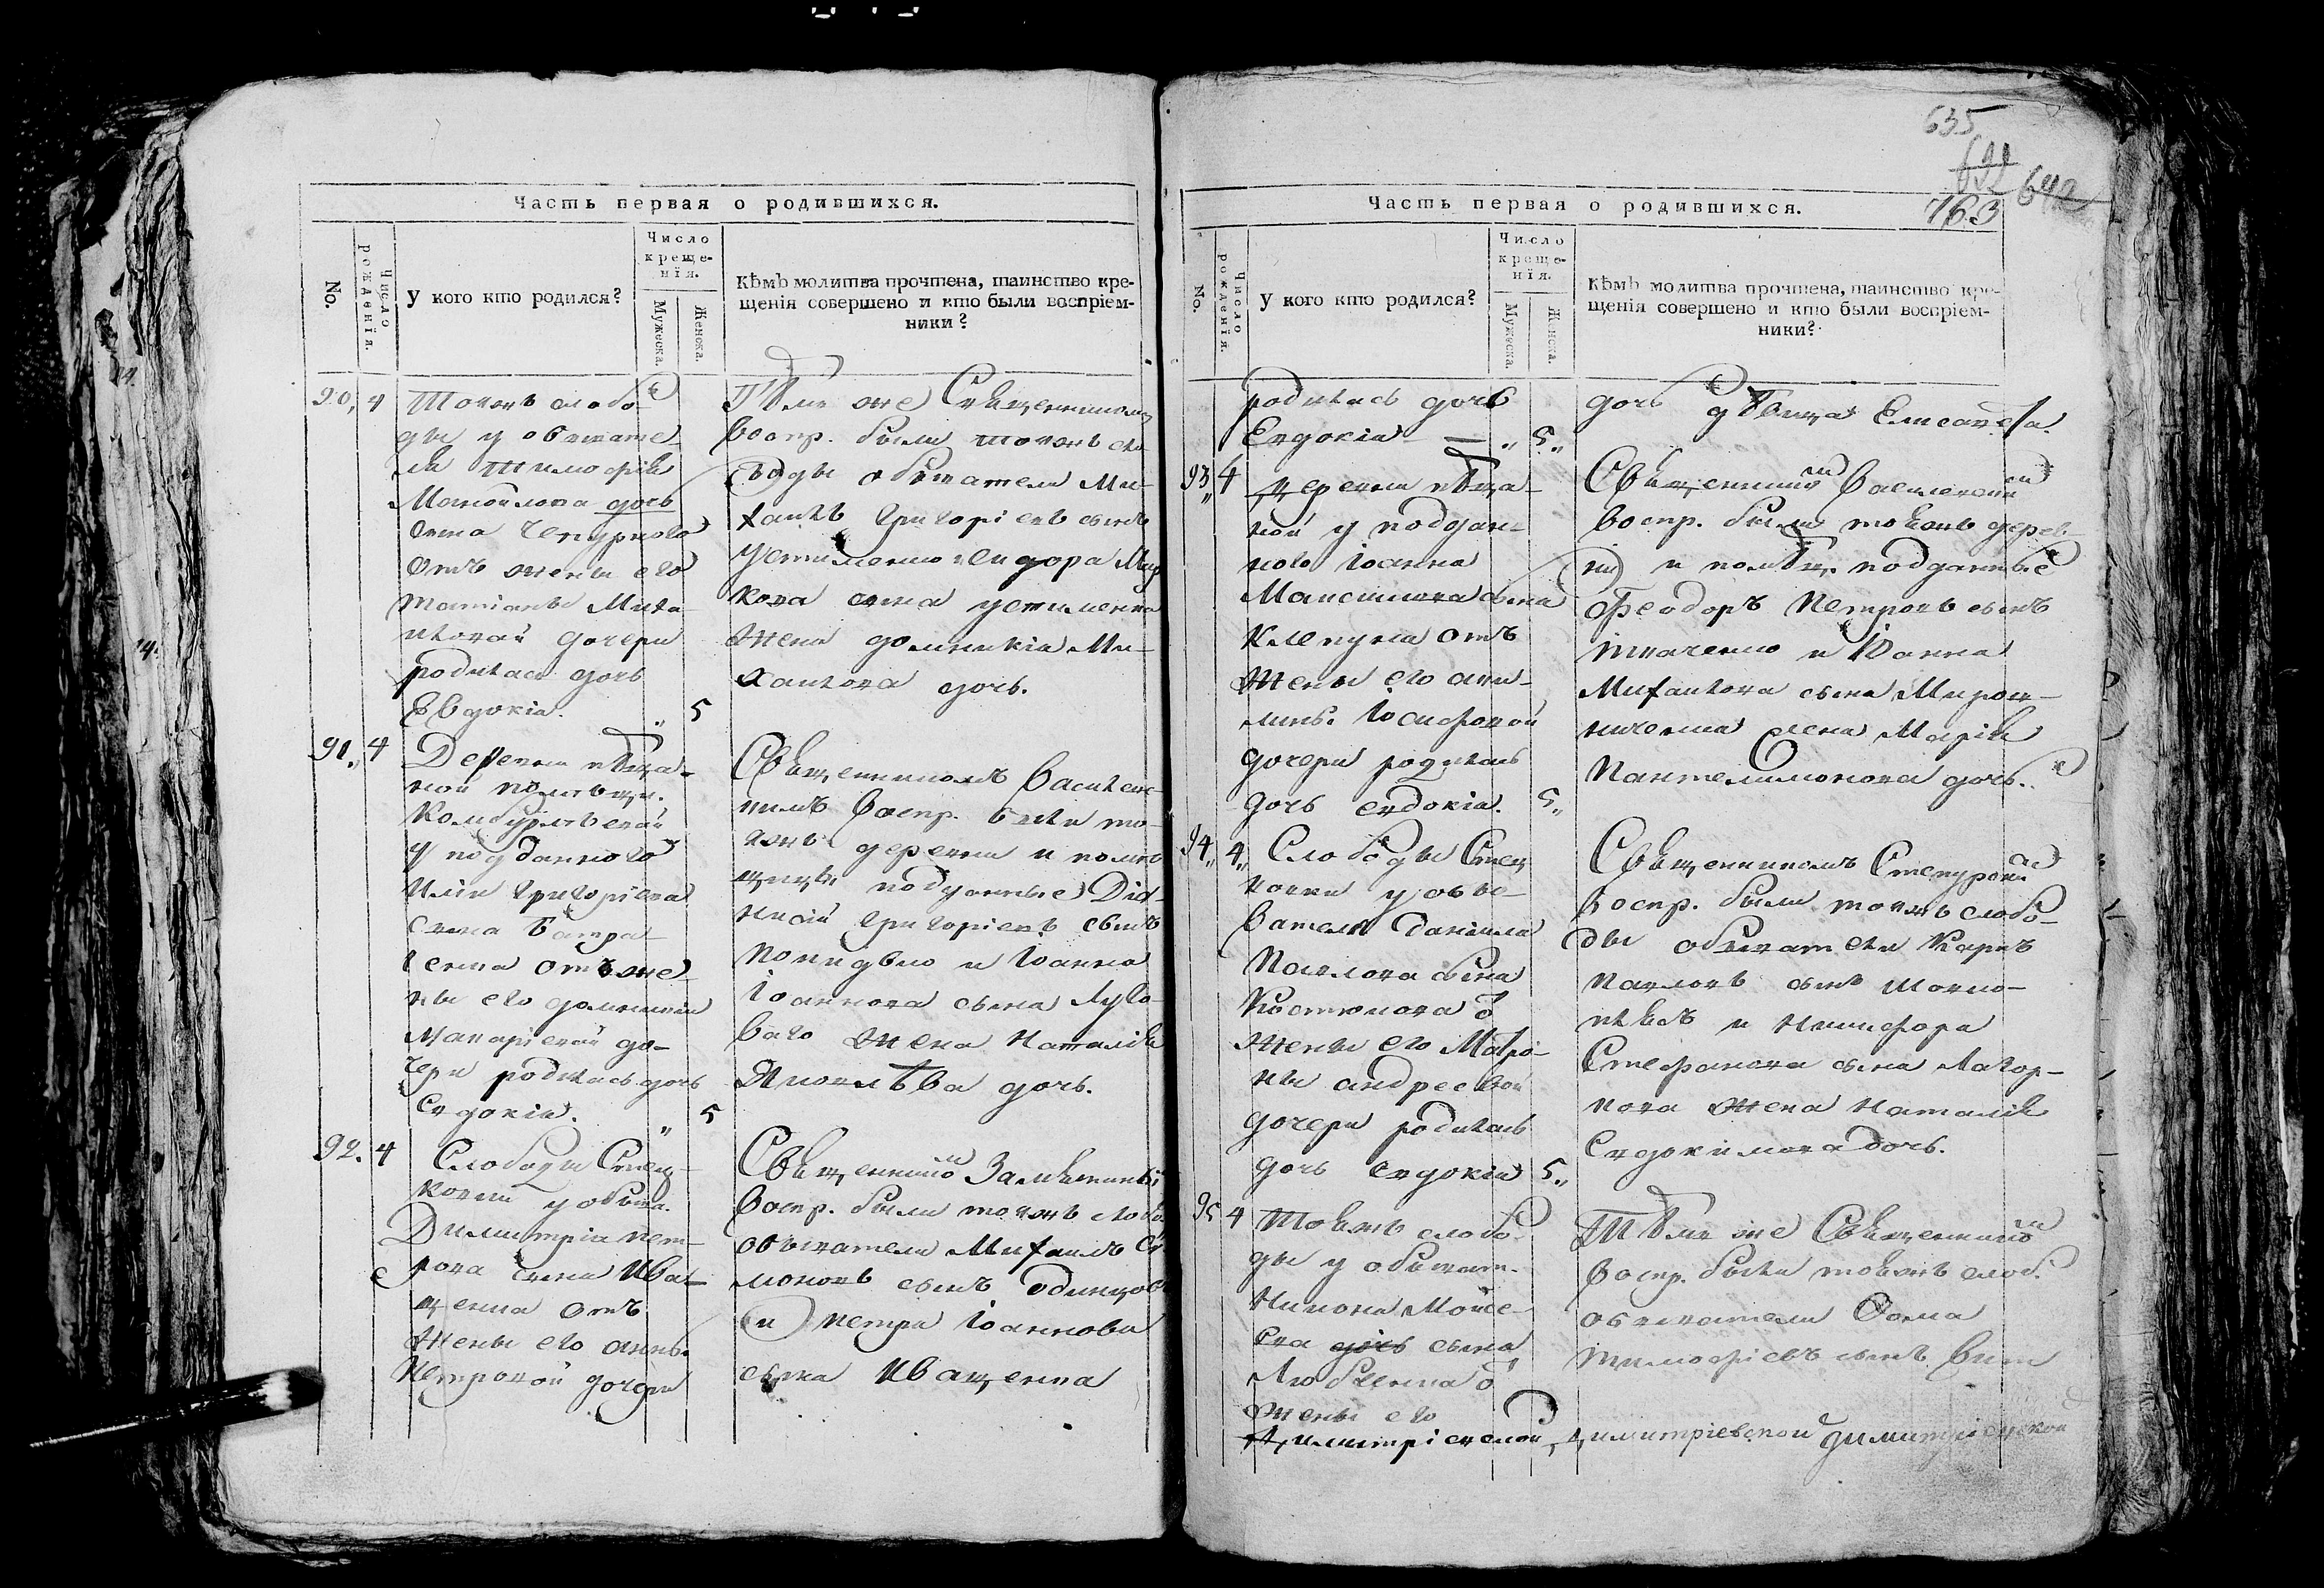 Часть первая о родившихся.
No.
Число рожденїя.
У кого кто родился?
Число
креще-
нїя.
Мужеска.
Женска.
Кѣмъ молитва прочтена, таинство кре-
щенія совершено и кто были воспріем-
ники?
90, 4
Тоежъ слобо-
ды у обывате-
ля Тимофѣя
Мануйлова дочь
сына Чепурного
отъ жены его
татіаны Миха-
иловой дочери
родилась дочь
Евдокіа. " 5
Тѣмъ же Священникомъ
воспр. были тоежъ сло-
боды обыватели Ми-
хаилъ Григоріевъ сынъ
Устименко
кова сына устименка
жена домникіа Ми-
хаилова дочь.
91" 4
Деревни пѣща-
ной помѣщи.
у подданного
Иліи Григоріева
сына
отъ же-
ны его домникіи
Макаріевой до-
чери родилась дочь
Евдокіа. " 5
Священникомъ Василев-
скимъ воспр. были то-
яжъ деревни и помѣ-
щицы подданные Діо-
нисій Григоріевъ сынъ
и Іоанна
Іоаннова сына Луго-
ваго жена Наталія
Яковлѣва дочь.
92. 4
Слободы Стец-
ковки у обыва.
Димитріа пет-
рова сына Ива-
щенка отъ
жены его анны
Петровой дочери
воспр. были тоежъ слобо.
обыватели Михаилъ Си-
моновъ сынъ Одинцов
и петра Іоаннова
сына Иващенка
635
692
763 642
Часть первая о родившихся.
No.
Число рожденїя.
У кого кто родился?
Число
креще-
нїя.
Мужеска.
Женска.
Кѣмъ молитва прочтена, таинство кре-
щенія совершено и кто были воспріем-
ники?
родилась дочь
Евдокіа — " 5"
дочь дѣвица Елисавета.
93" 4
деревни пѣща-
ной у поддан-
ного Іоанна
Максимова сына
Клепука отъ
жены его аки-
лины Іосифовой
дочери родилась
дочь евдокіа. 5"
воспр. были тояжъ дерев-
ни и помѣщ. подданные
Феодоръ Петровъ сынъ
ткаченко и Іоанна
Михаилова сына Мирош-
ниченка жена Марія
Пантелимонова дочь.
94" 4"
Слободы Стец
ковки у обы-
вателя Даніила
Павлова сына
Костюкова о
жены его Матро-
ны андреевой
дочери родилась
дочь евдокіа 5"
воспр. были тоежъ слобо-
ды обыватели Карпъ
Павловъ сынъ
и Никифора
Стефанова сына Лагор-
кова жена Наталія
Евдокимова дочь.
95 4
Тоежъ слобо-
ды у обыват.
Никона Мойсе-
ева дочь сына
Любченка о
жены его
Димитріевской
Тѣмъ же Священнико
воспр. были тоежъ слоб.
обыватели Фома
тимофіевъ сынъ
димитріевской димитріевской